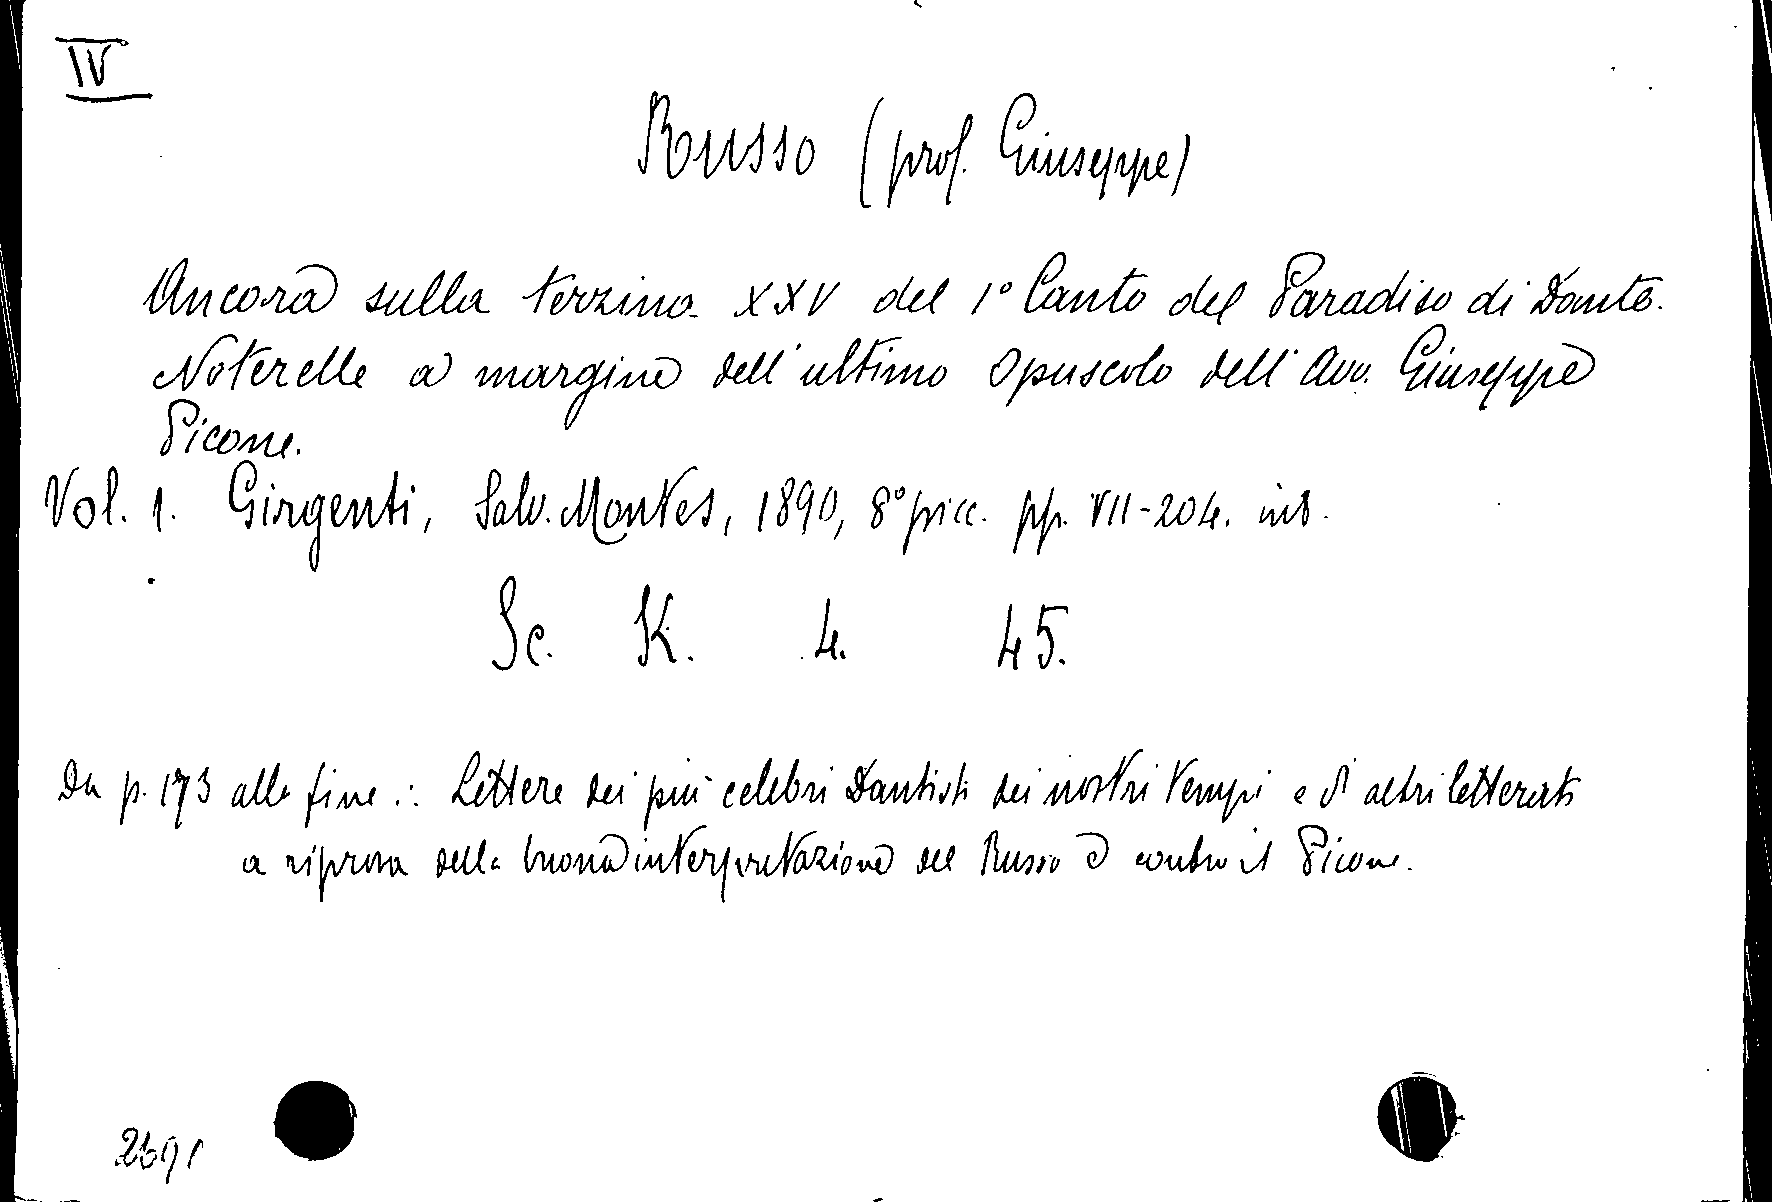 IV
Russo (prof. Giuseppe)
Ancora sulla terzina XXV del 1° Canto del Paradiso di Dante.
Noterelle a margine dell'ultimo opuscolo dell'Avv. Giuseppe
Picone.
Vol. 1. Girgenti, Salv. Montes, 1890, 8° picc. pp. VII-204. int.
Sc. K. 4. 45.
Da p. 173 alla fine: Lettere dei più celebri Dantisti dei nostri tempi e di altri letterati
a riprova della buona interpretazione del Russo e contro il Picone.